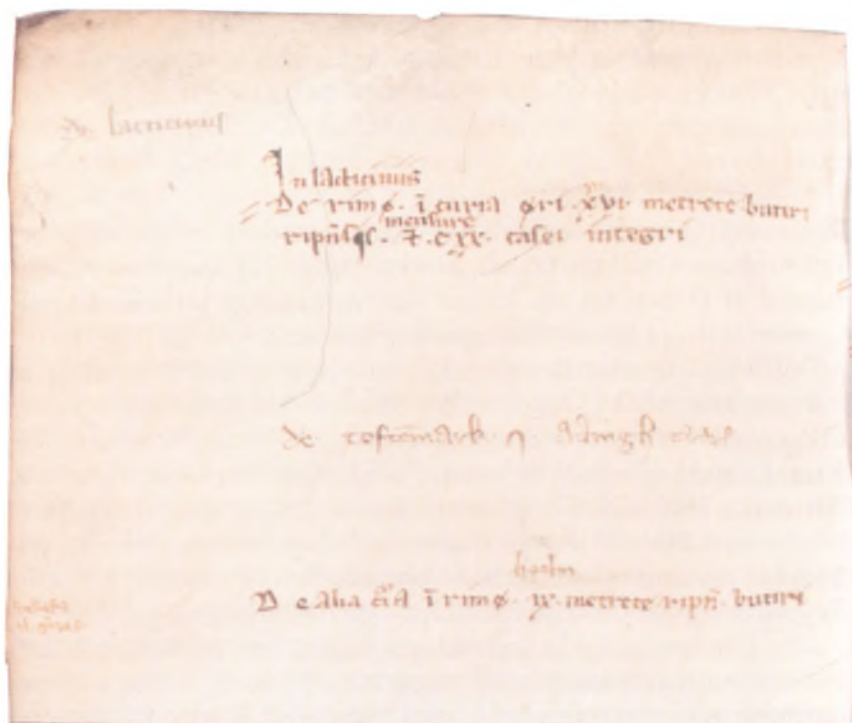 de lacticiniis
In lacticiniis
De rimø · ī curia øri · xvi · metrete butiri
mensure
ripn̄ſeſ · ⁊ · cxx · casei integri
de toftemark ⁊
D e alia cͥa ī rimø · ix · metrete ripn̄ · butiri